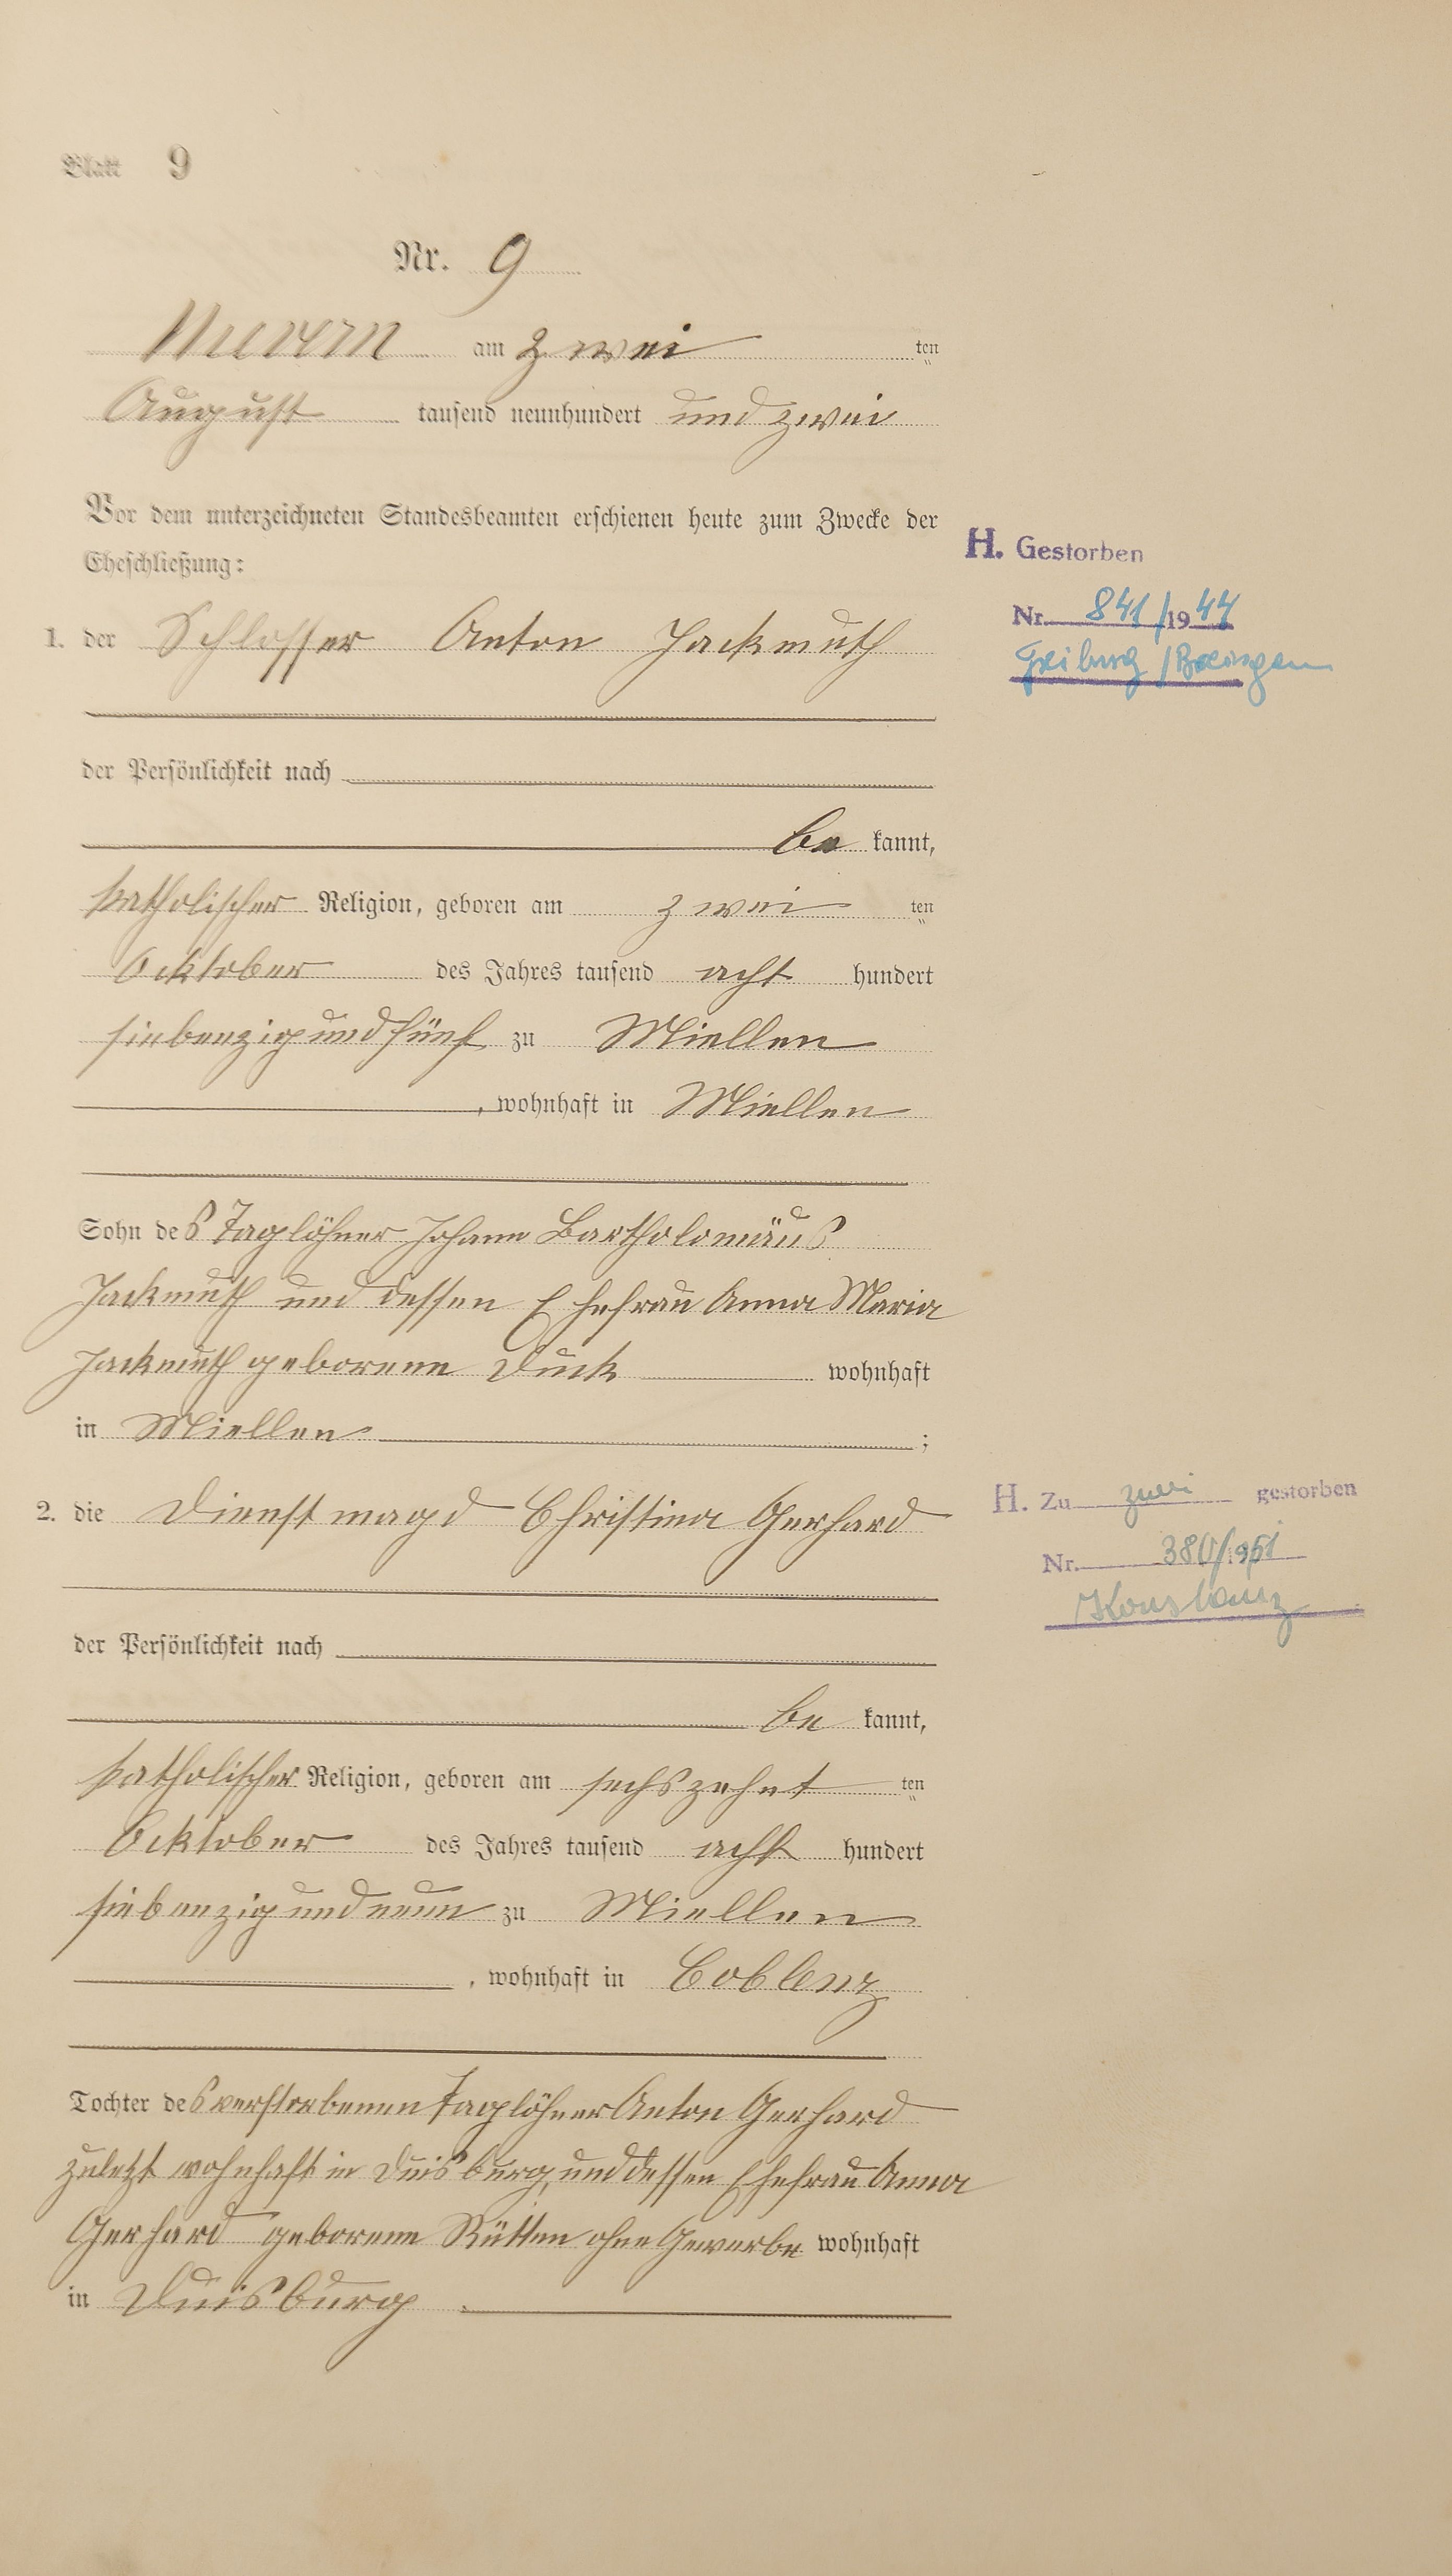 Blatt 9
Nr. 9
am zwei ten
August tausend neunhundert und zwei
Vor dem unterzeichneten Standesbeamten erschienen heute zum Zwecke der
Eheschließung:
1. der Schlosser Anton Jackmuth
der Persönlichkeit nach
be kannt,
katholischer Religion, geboren am zwei ten
Ocktober des Jahres tausend acht hundert
siebenzig und fünf zu Miellen
, wohnhaft in Miellen
Sohn des Taglöhner Johann Bartholomäus
Jackmuth und dessen Ehefrau Anna Maria
Jackmuth geborene Duck wohnhaft
in Miellen ;
2. die Dienstmagd Christina Gerhard
der Persönlichkeit nach
be kannt,
katholischer Religion, geboren am sechszehnt ten
Ocktober des Jahres tausend acht hundert
siebenzig und neun zu Miellen
, wohnhaft in Coblenz
Tochter des verstorbenen Taglöhner Anton Gerhard
zuletzt wohnhaft in Duisburg, und dessen Ehefrau Anna
Gerhard geborene Rütten ohne Gewerbe wohnhaft
in Duisburg.
H. Gestorben
Nr. 841/1944
H. Zu zwei gestorben
Nr. 380/1951
Konstanz